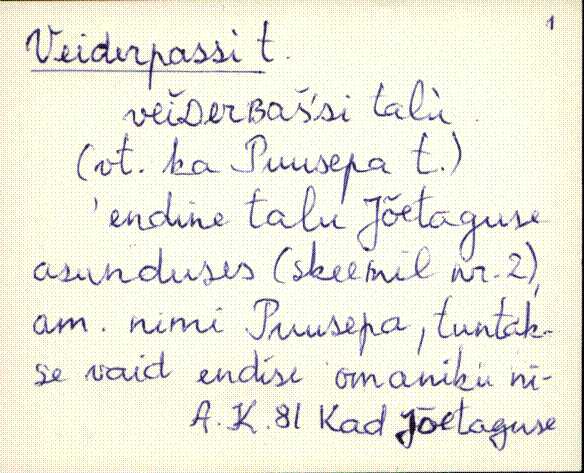 1
Veiderpassi t.
veiDerBaśsi talù
(vt. ka Puusepa t.)
'endine talu Jõetaguse
asunduses (skeemil nr. 2),
am. nimi Puusepa, tuntak-
se vaid endise omaniku ni-
A. K. 81 Kad Jõetaguse